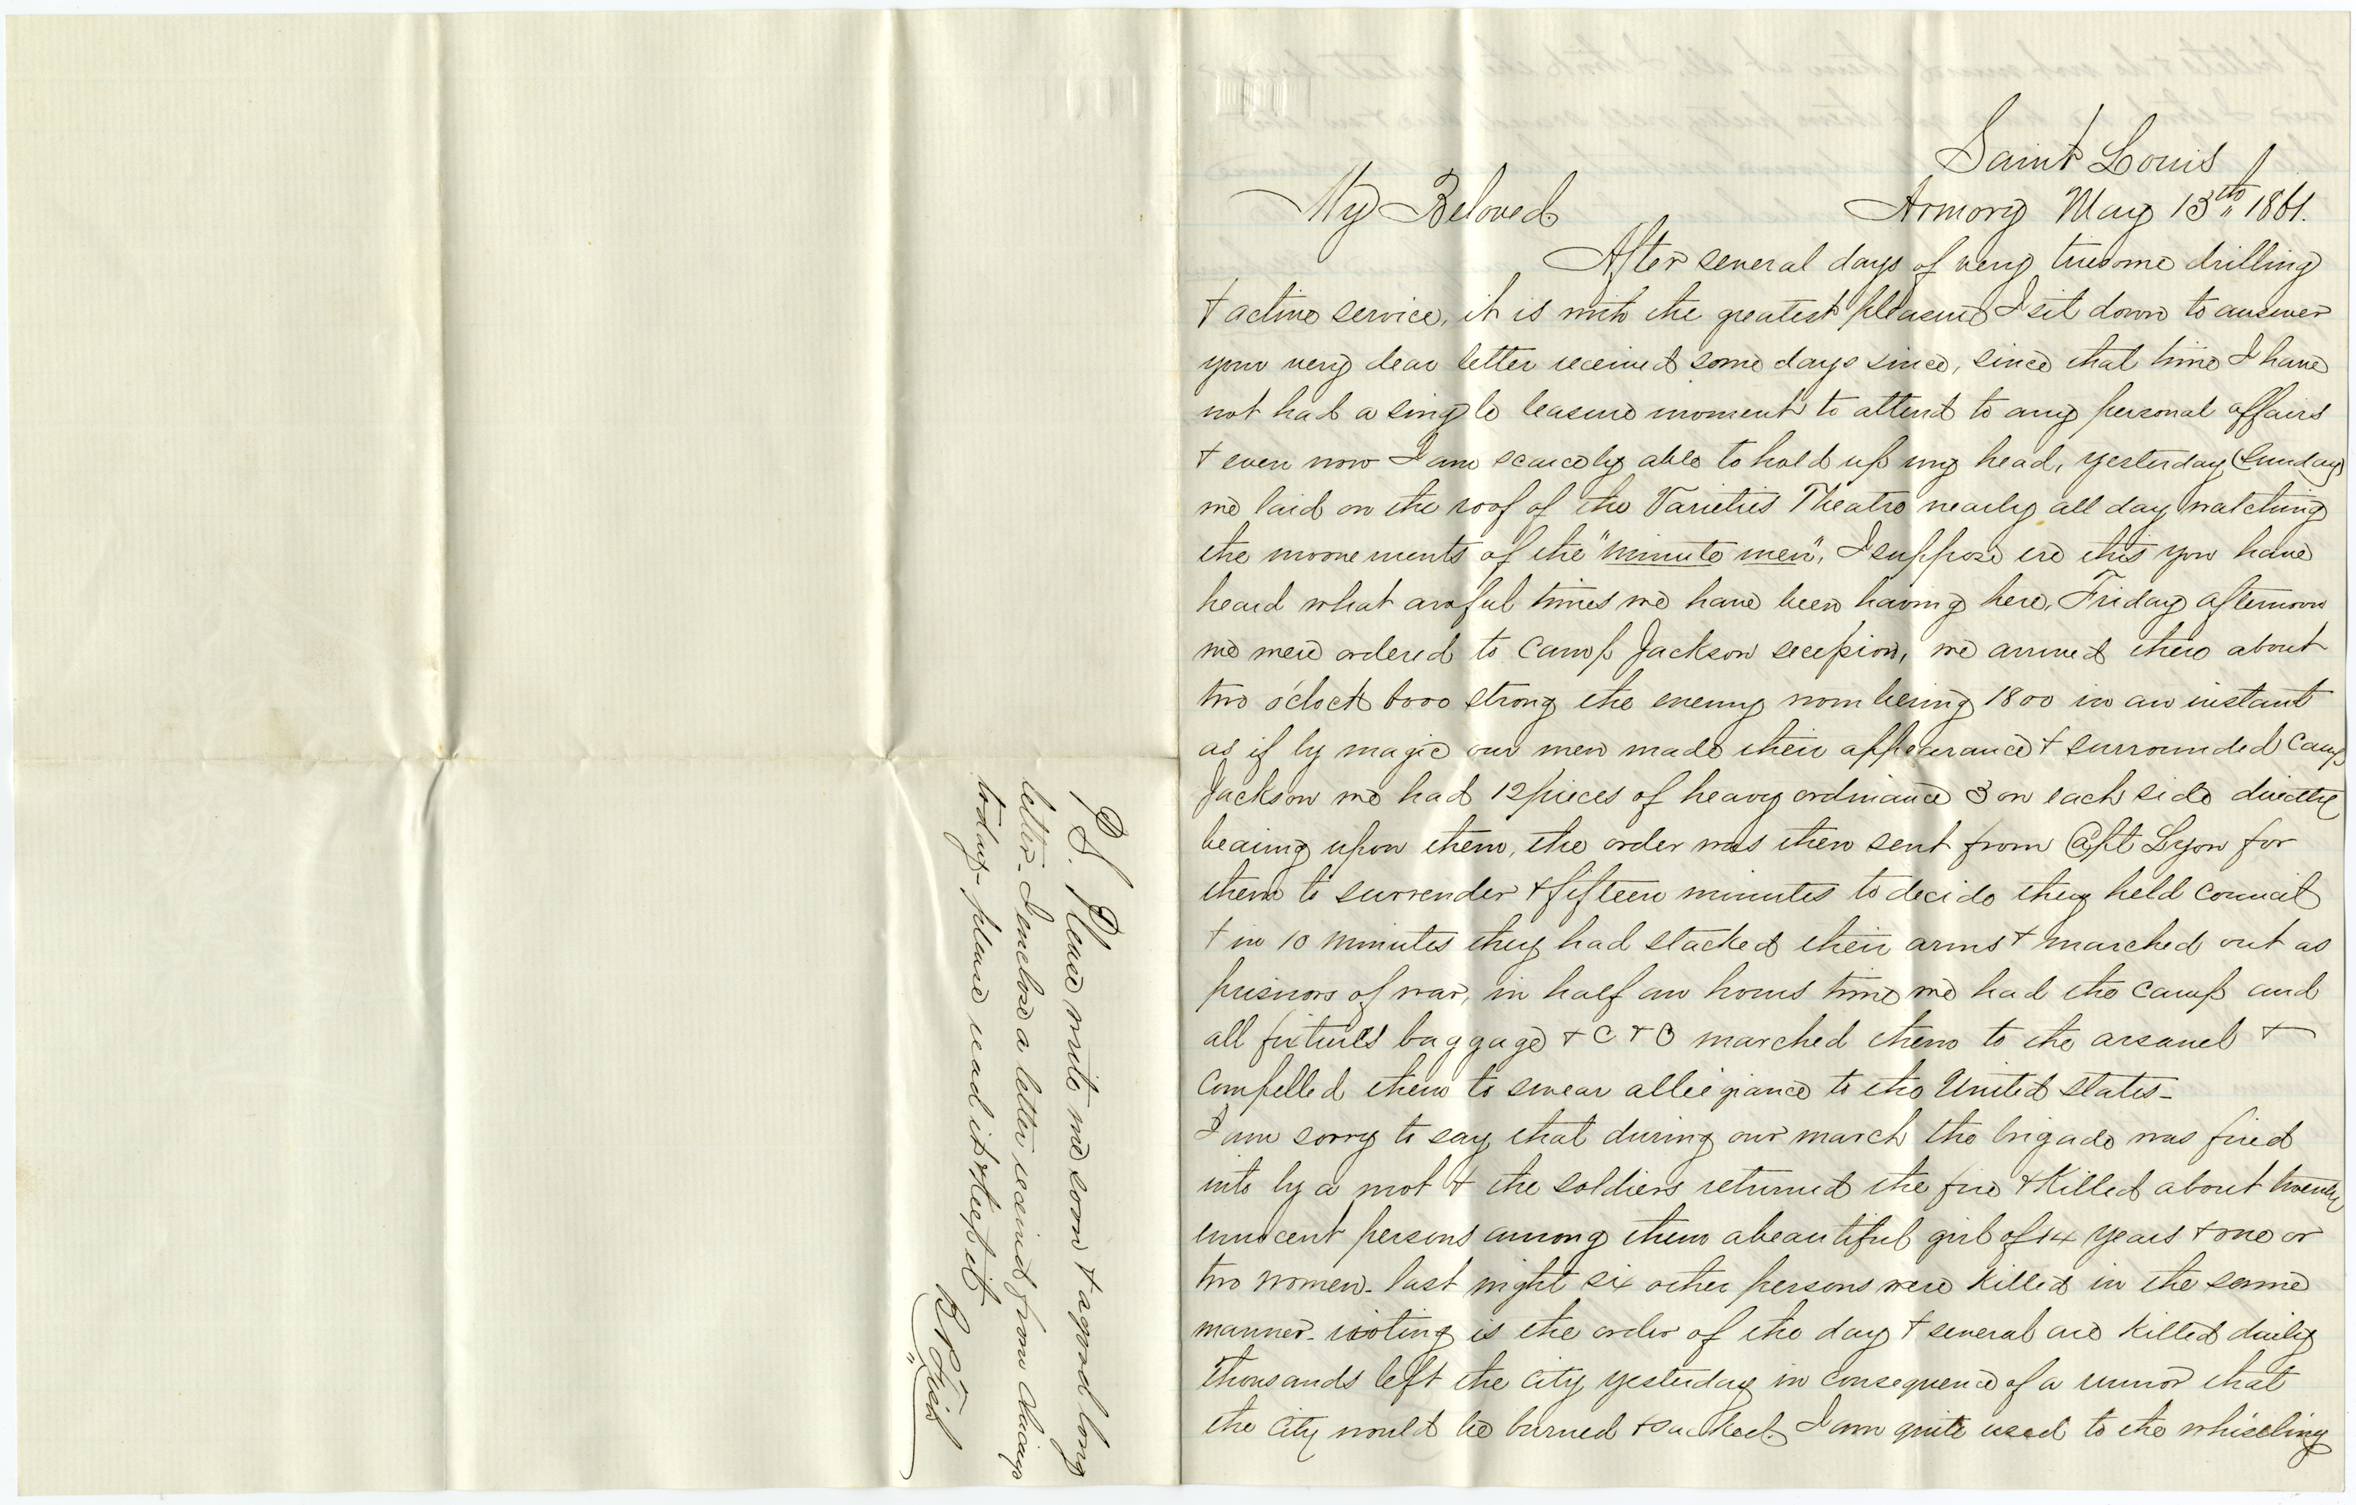 Saint Louis
Armory May 13th 1861.
My Beloved
After several days of very tiresome drilling
& active service, it is with the greatest pleasure I sit down to answer
your very dear letter received some days since, since that time I have
not had a single leasure moment to attend to any personal affairs
& even now I am scarcely able to hold up my head, yesterday (Sunday)
we laid on the roof of the Varieties Theatre nearly all day watching
the movements of the "minute men", I suppose ere this you have
heard what awful times we have been having here, Friday afternoon
we were ordered to Camp Jackson secession, we arrived there about
two o'clock 6000 strong the enemy nombering 1800 in an instant
as if by magic our men made their appearance & surrounded Camp
Jackson we had 12 pieces of heavy ordinance 3 on each side directly
bearing upon them, the order was then sent from Capt Lyon for
them to surrender & fifteen minutes to decide they held council
& in 10 minutes they had stacked their arms & marched out as
prisnors of war, in half an hours time we had the camp and
all fixtures baggage & C & C marched them to the arsanel &
compelled them to swear alliegiance to the United States-
I am sorry to say that during our march the brigade was fired
into by a mob & the soldiers returned the fire & killed about twenty
innocent persons among them a beautiful girl of 14 years & one or
two women- last night six other persons were killed in the same
manner- rioting is the order of the day & several are killed daily
thousands left the city yesterday in consequence of a rumor that
the city would be burned & sacked- I am quite used to the whiseling
P.S. Please write me soon & a good long
letter- I enclose a letter received from Chicago
today- please read it & keep it